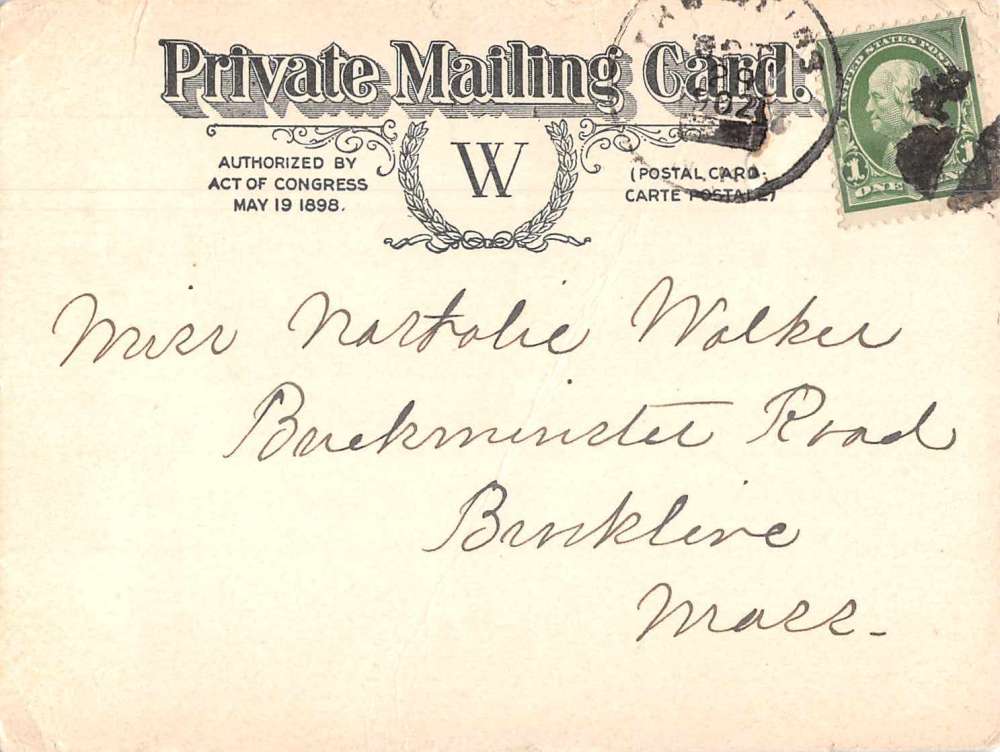 Private Mailing Card.
AUTHORIZED BY
ACT OF CONGRESS
MAY 19 1898.
W
(POSTAL CARD-
CARTE POSTALE)
UNITED STATES POST
1 1
ONE
'02
Miss Nathalie Walker
Buckminster Road
Brookline
Mass.